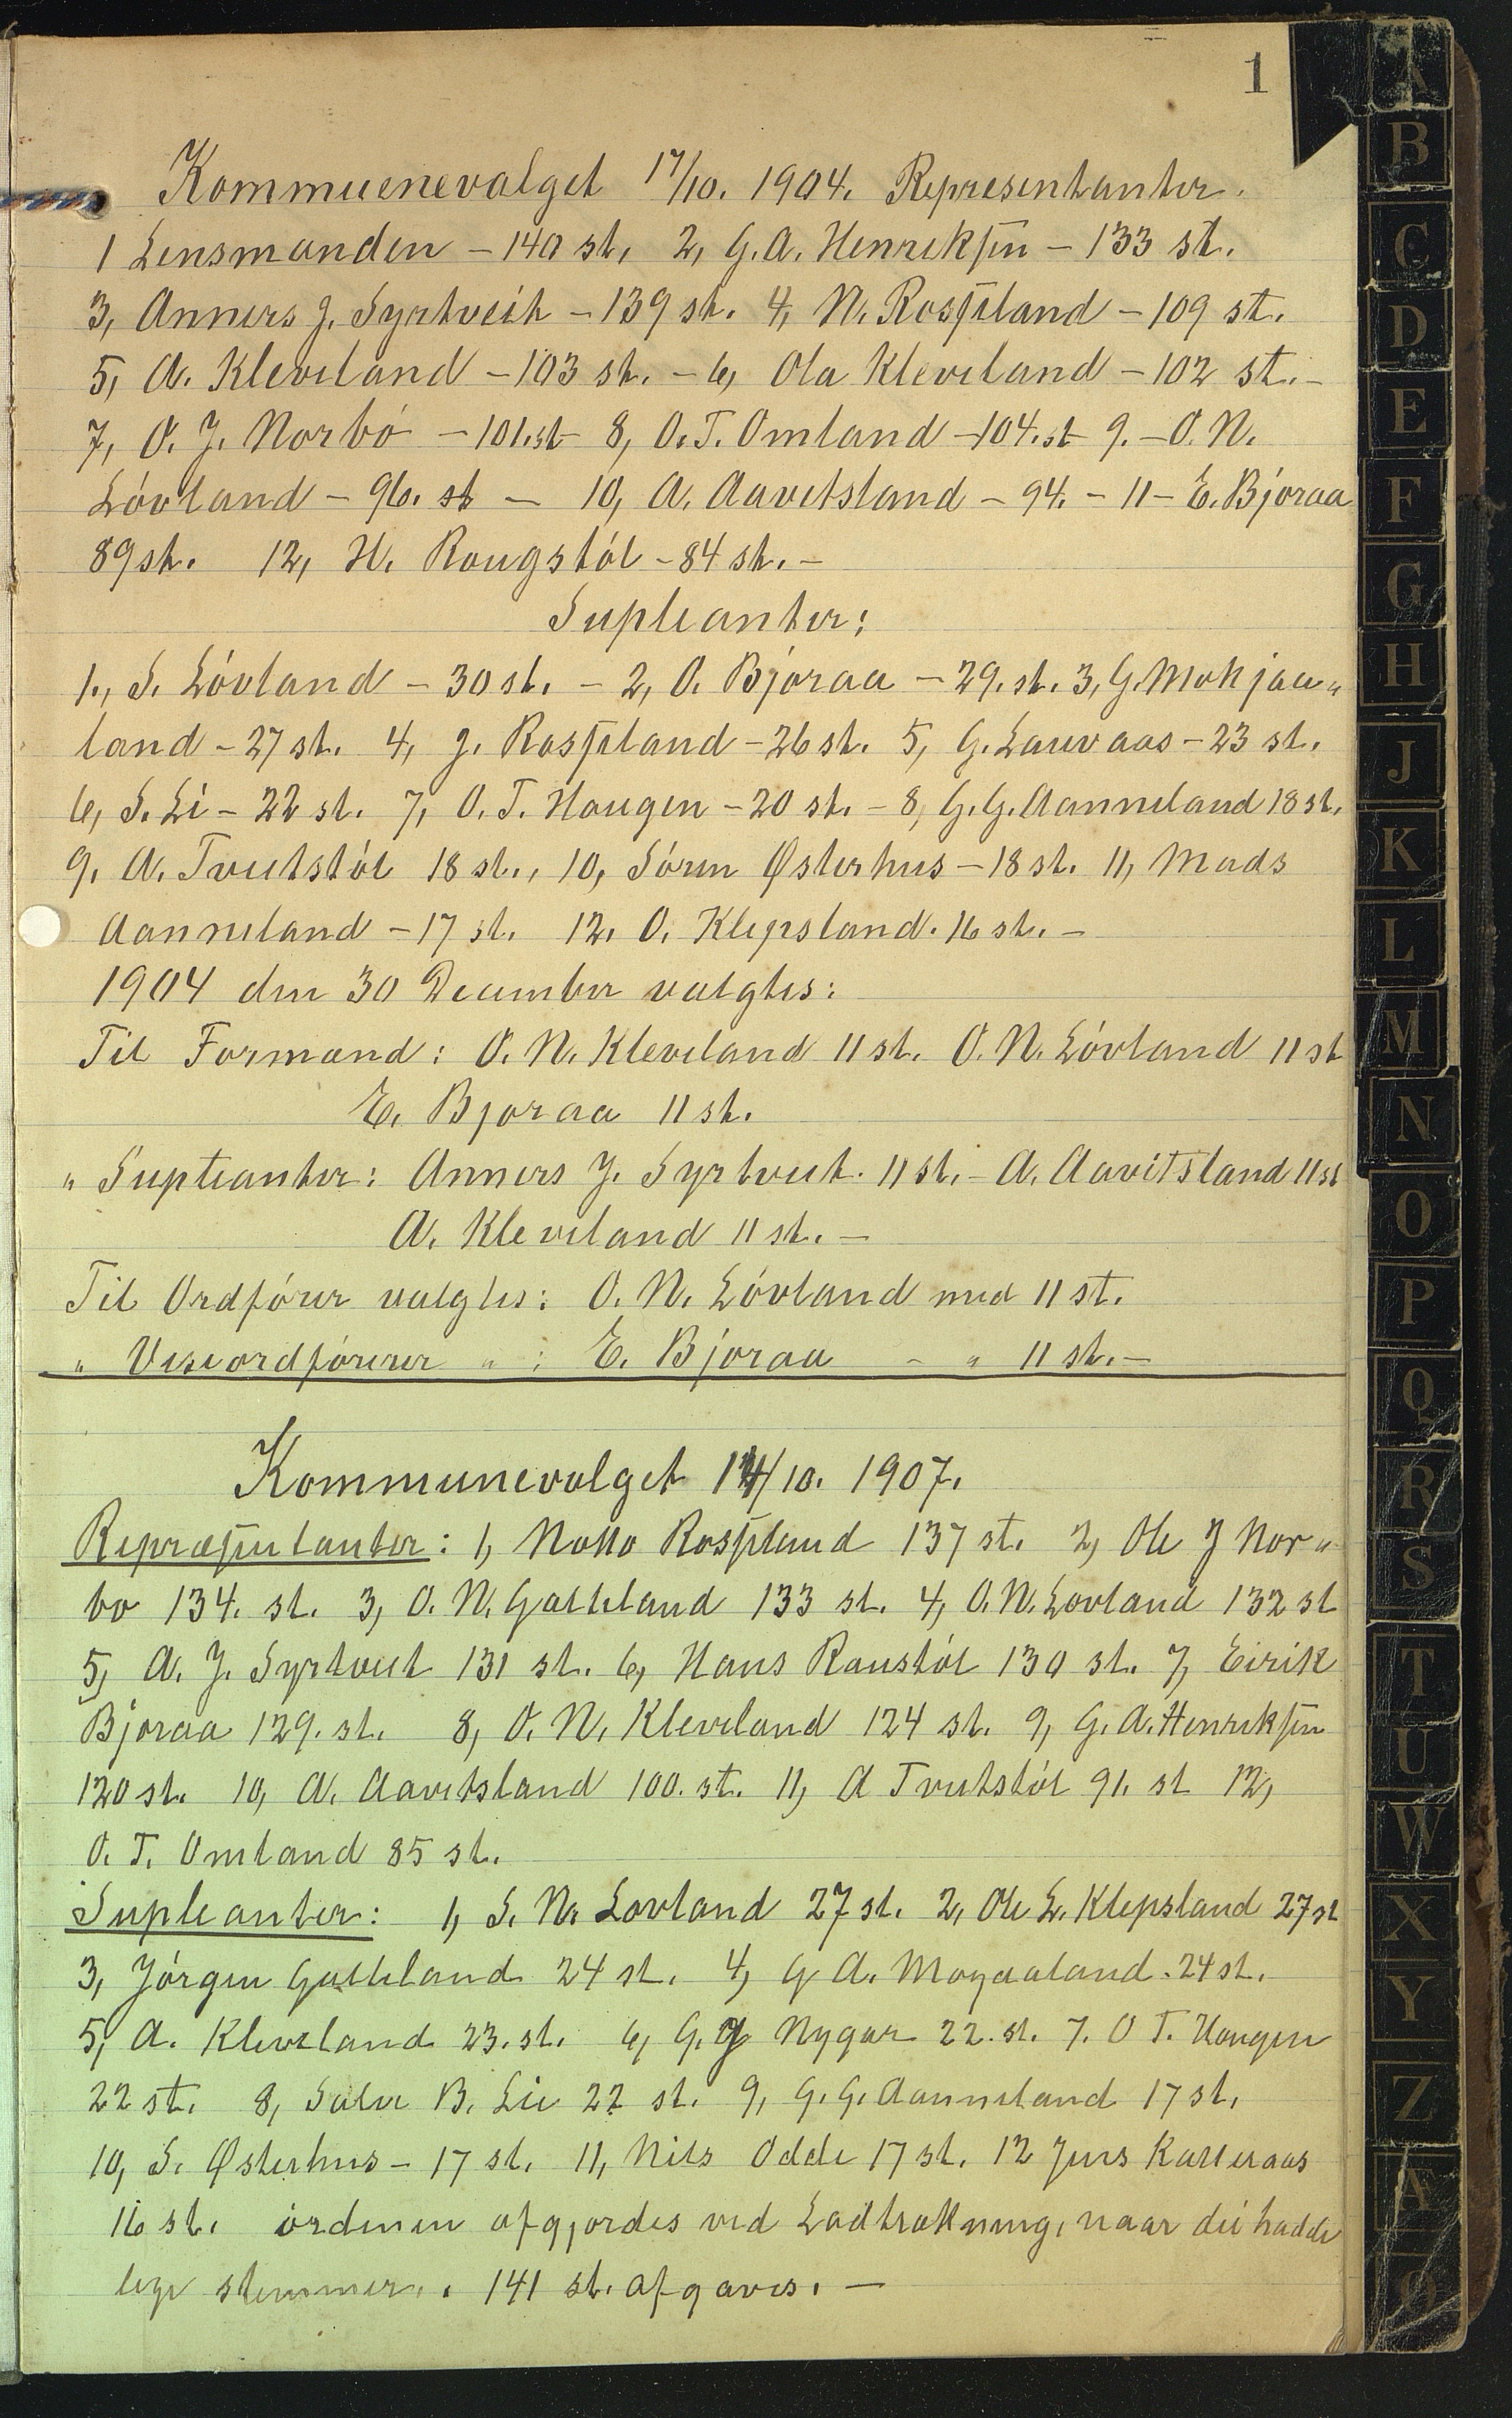 1
Kommuenevalget 17/10. 1904. Representanter.
1 Lensmanden – 140 st. 2, G. A. Henriksen – 133 st.
3, Anners J. Syrtveit – 139 st. 4, N. Rosseland – 109 st.
5, A. Kleveland – 103 st. – 6, Ola Kleveland – 102 st. –
7, O. J. Norbó – 101. st – 8, O. T. Omland – 104. st – 9. – O. N.
Lóvland – 96. st – 10, A. Aavitsland – 94. – 11 – E. Bjoraa
89 st. 12, H. Rougstól – 84 st. –
Supleanter:
1., S. Lóvland – 30 st. – 2, O. Bjoraa – 29. st. 3, G. Mokjaa„
land – 27 st. 4, J. Rosseland – 26 st. 5, G. Lauvaas – 23 st.
6, S. Li – 22 st. 7, O. T. Haugen – 20 st. – 8, G. G. Aanneland 18 st.
9. A. Tveitstól 18 st., 10, Sóren Østerhus – 18 st. 11, Mads
Aanneland – 17 st. 12. O. Klepsland. 16 st. –
1904 den 30 December valgtes:
Til Formænd: O. N. Kleveland 11 st. O. N. Lóvland 11 st
E. Bjoraa 11 st.
„ Supleanter: Anners J. Syrtveit. 11 st. – A. Aavitsland 11 st
A. Kleveland 11 st. –
Til Ordfórer valgtes: O. N. Lóvland med 11 st.
„ Viseordfórerer „ : E. Bjoraa – „ 11 st. –
Kommunevalget 14/10. 1907.
Repræsentanter: 1, Notto Rosseland 137 st. 2, Ole J Nor„
bo 134. st. 3, O. N. Gatheland 133 st. 4, O. N. Lovland 132 st
5, A. J. Syrtveit 131 st. 6, Hans Raustól 130 st. 7, Eirik
Bjoraa 129. st. 8, O. N. Kleveland 124 st. 9, G. A. Henriksen
120 st. 10, A. Aavitsland 100. st. 11, A Tveitstól 91. st 12,
O. T. Omland 85 st.
Supleanter: 1, S. N. Lovland 27 st. 2, Ole L. Klepsland 27 st
3, Jórgen Gatheland 24 st. 4, G A. Moyaaland. 24 st.
5, A. Kleveland 23. st. 6, G. J Nygar 22. st. 7. O T. Haugen
22 st. 8, Salve B. Lie 22 st. 9, G. G. Aanneland 17 st.
10, S. Østerhus – 17 st. 11, Nils Odde 17 st. 12 Jens Katteraas
16 st. ordenen afgjordes ved Lodtrækning, naar dei hadde
lige stemmer. . 141 st. afgaves. –
A
B
C
D
E
F
G
H
J
K
L
M
N
O
P
Q
R
S
T
U
W
X
Y
Z